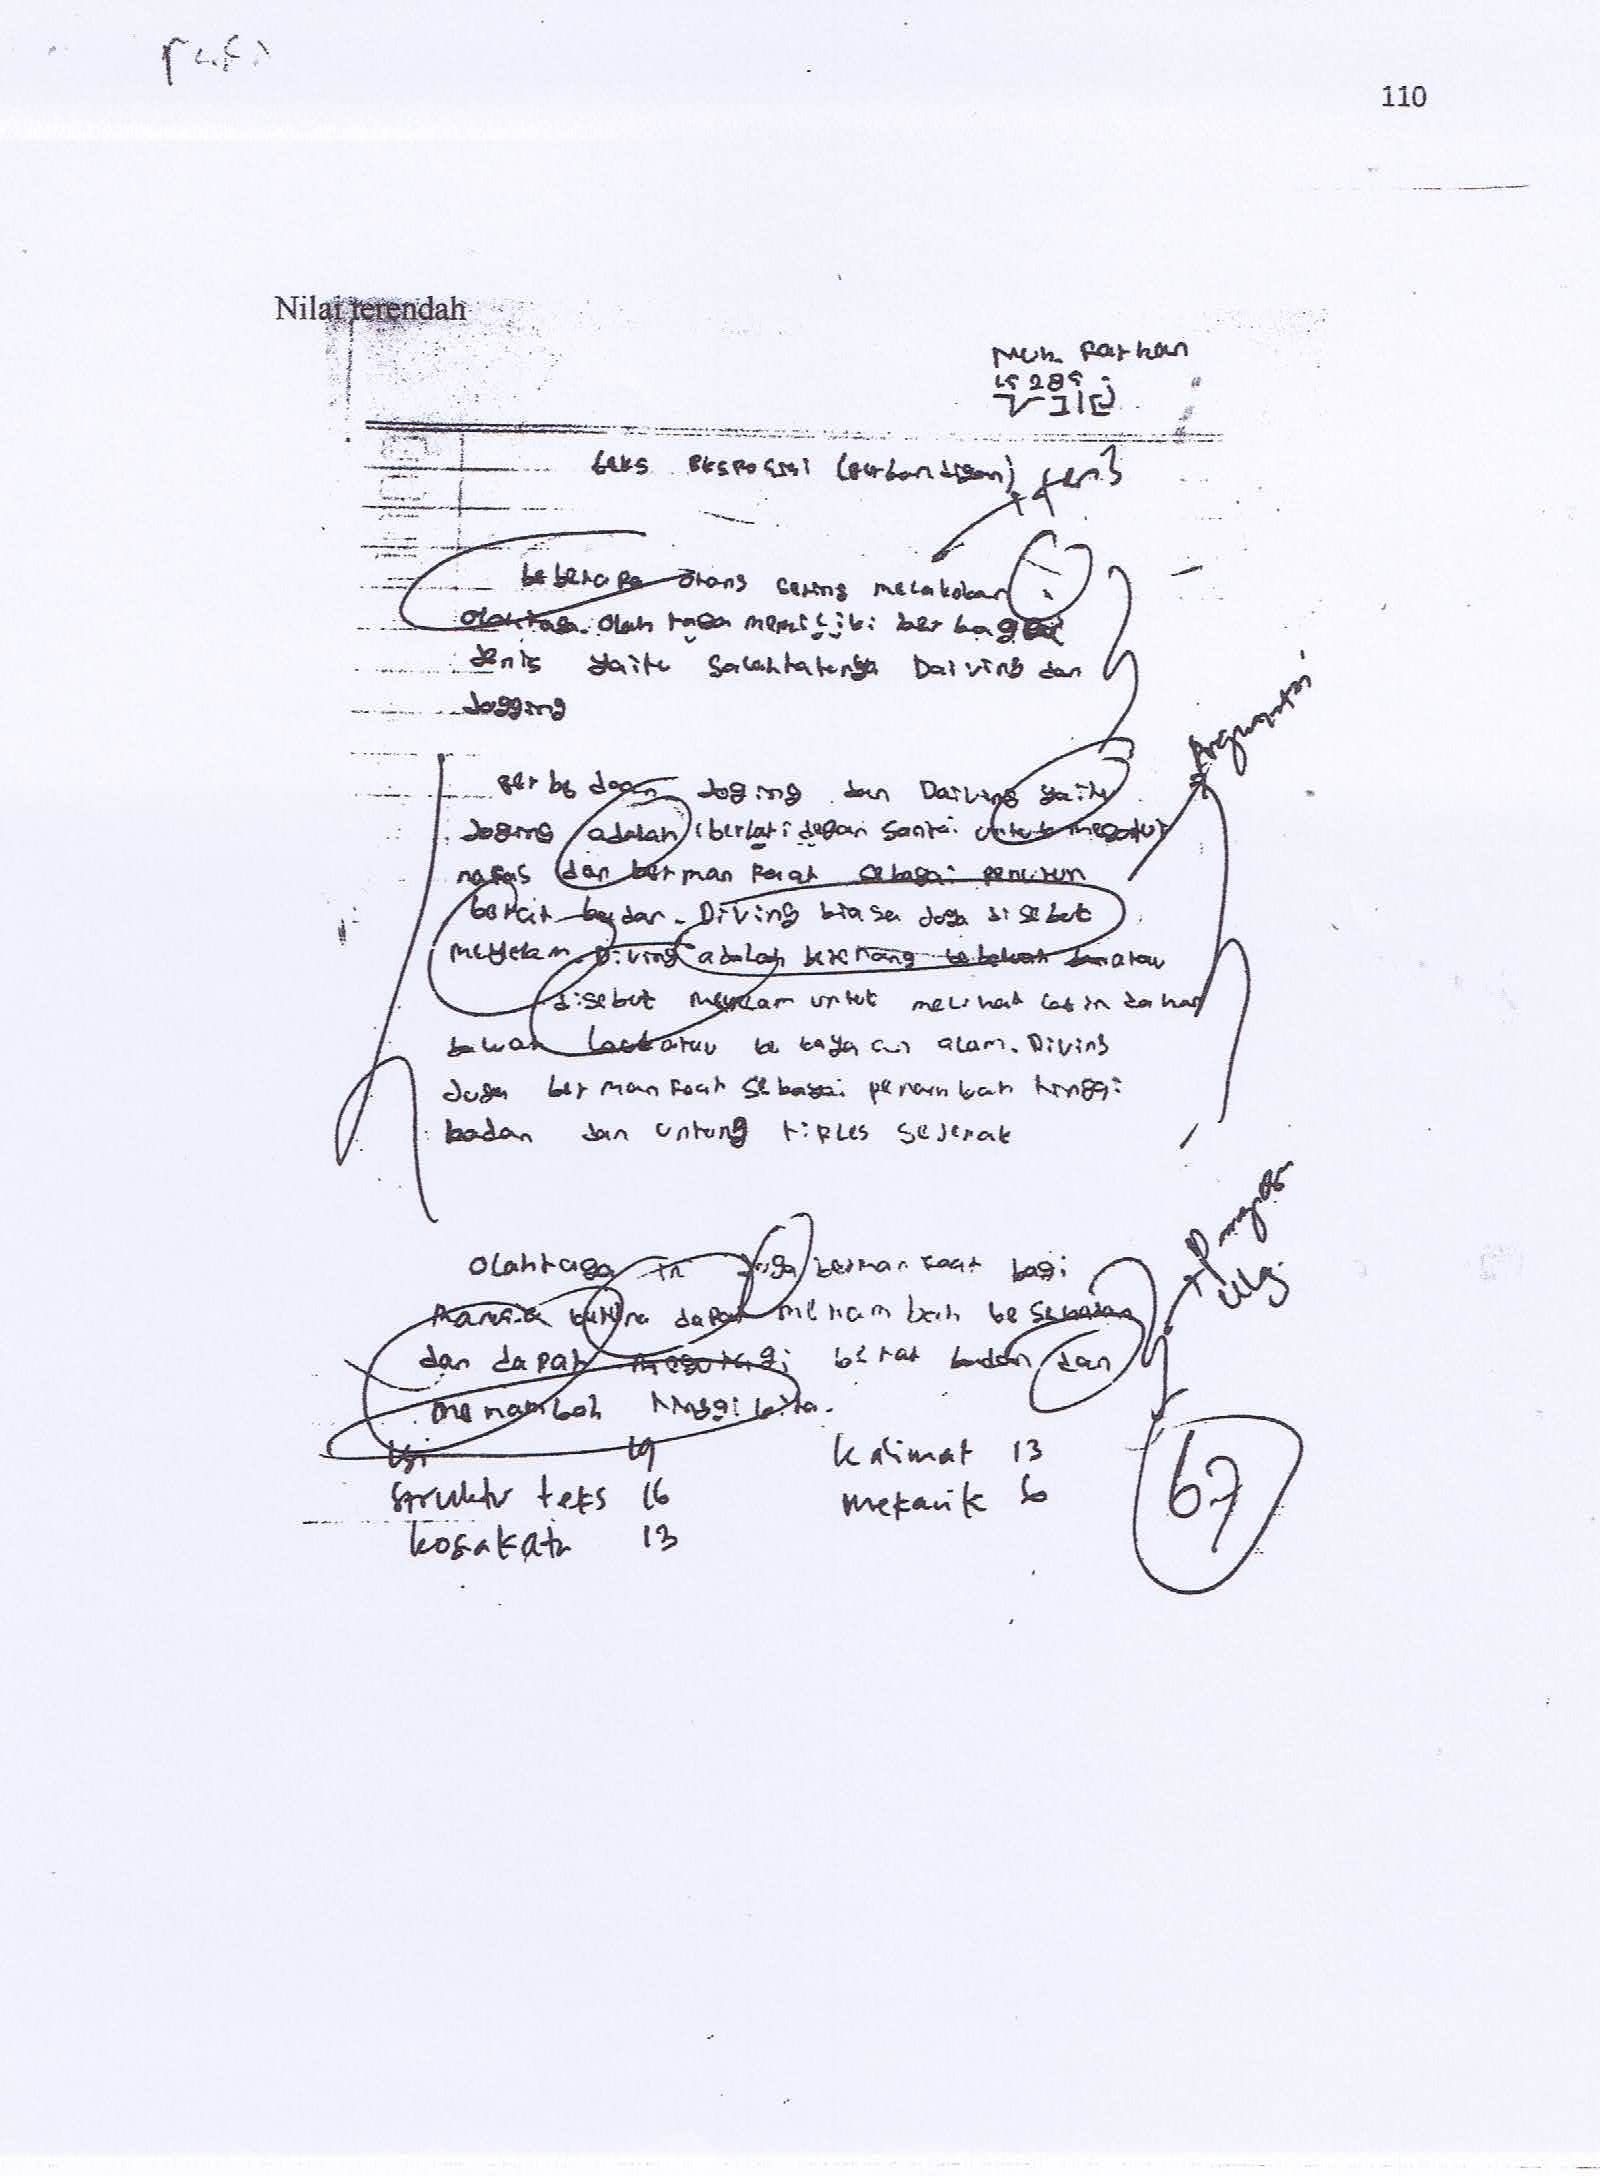 110
Nilai terendah
Muh Farhan
teks eksposisi (perbandigan)
beberapa orang sering melakokan
olahraga. olah raga memiliki berbagai
jenis yaitu salahtatunya Daiving dan
Jogging
Perbedaan Joging dan Daiving yaitu
Joging adalah berlari degan santai untuk megatur
nafas dan bermanfaat sebagai penurun
berat badan. Diving biasa juga disebut
meyelam. Diving adalah berenang atau
disebut meyelam untuk melihat
bawah laut atau kekayaan alam. Diving
Juga bermanfaat sebagai penambah tinggi
badan dan untung sejenak
Argumentasi
Olahraga juga bermanfaat bagi
Manusia karena dapat menambah kesehatan
dan dapat megurangi berat badan dan
menambah tinggi kita.
Isi 19 Kalimat 13
Struktur teks 16 Mekanik 6
kosakata 13
67